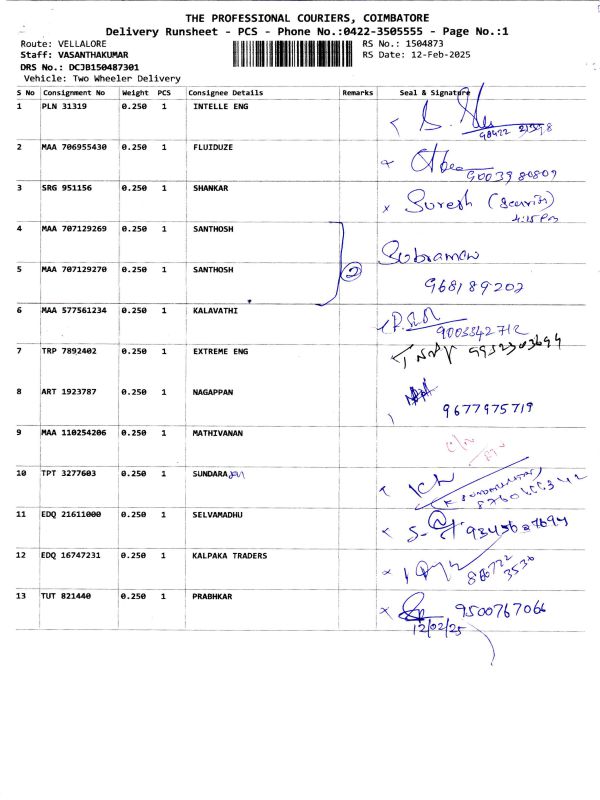 THE PROFESSIONAL COURIERS, COIMBATORE
Delivery Runsheet - PCS - Phone No.:0422-3505555 - Page No.:1
Route: VELLALORE RS No.: 1504873
Staff: VASANTHAKUMAR RS Date: 12-Feb-2025
DRS No.: DCJB150487301
Vehicle: Two Wheeler Delivery
S No Consignment No Weight PCS Consignee Details Remarks Seal & Signature
1 PLN 31319 0.250 1 INTELLE ENG
2 MAA 706955430 0.250 1 FLUIDUZE
9003980809
3 SRG 951156 0.250 1 SHANKAR Suresh (Security)
4:15 Pm
4 MAA 707129269 0.250 1 SANTHOSH
Subraman
5 MAA 707129270 0.250 1 SANTHOSH 2
968189202
6 MAA 577561234 0.250 1 KALAVATHI
9003342712
7 TRP 7892402 0.250 1 EXTREME ENG
8 ART 1923787 0.250 1 NAGAPPAN
9677975719
9 MAA 110254206 0.250 1 MATHIVANAN
10 TPT 3277603 0.250 1 SUNDARA
11 EDQ 21611000 0.250 1 SELVAMADHU
12 EDQ 16747231 0.250 1 KALPAKA TRADERS
13 TUT 821440 0.250 1 PRABHKAR 9500767066
12/02/25